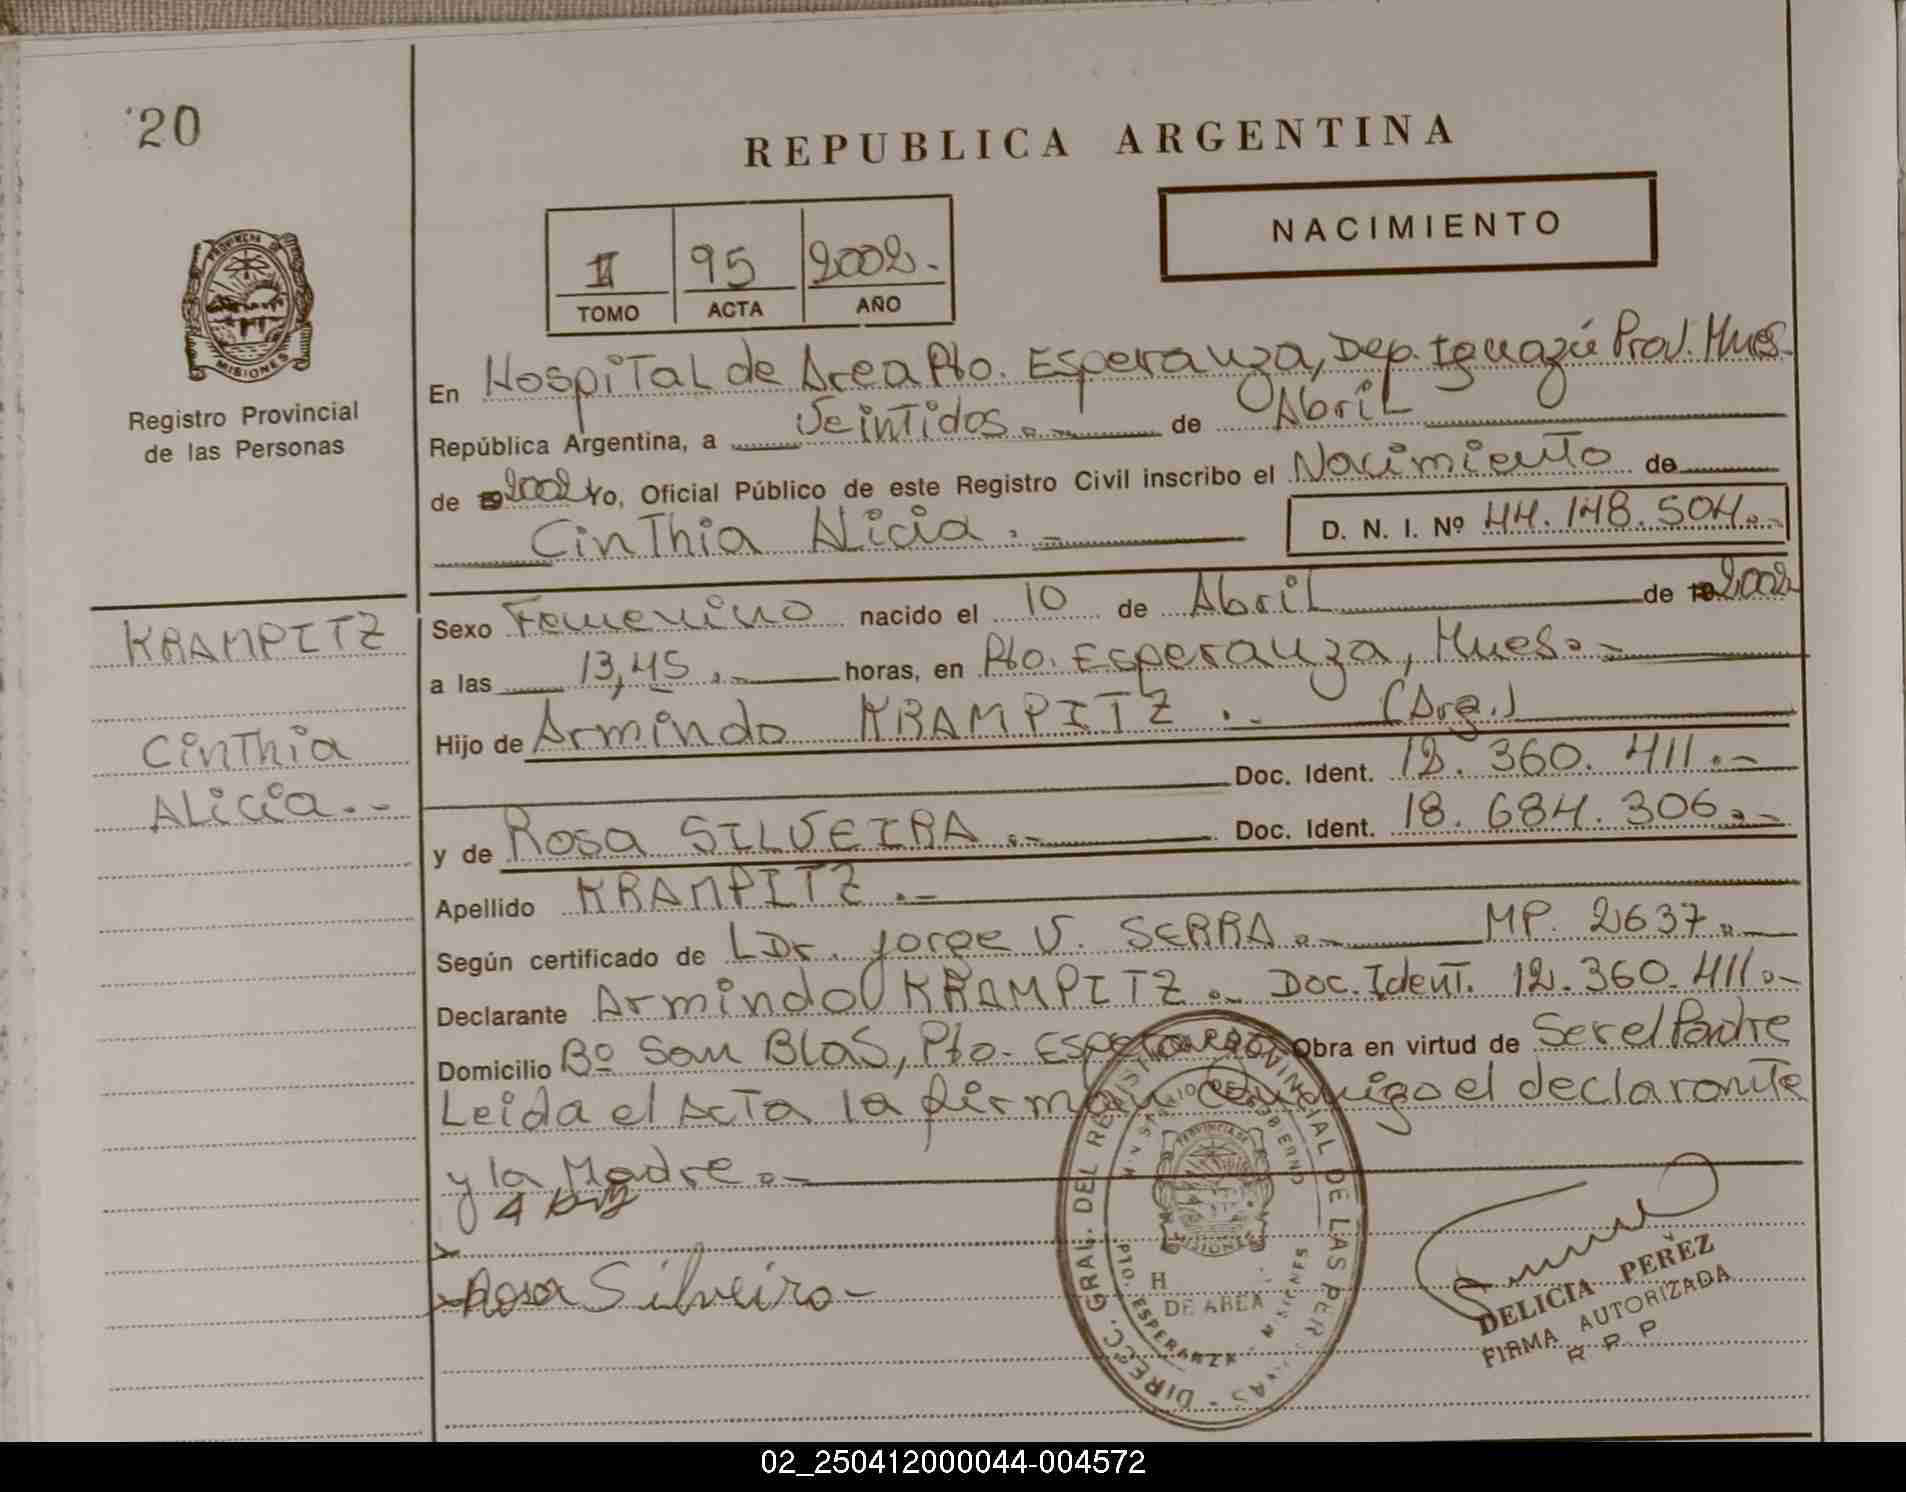 20
REPUBLICA ARGENTINA
NACIMIENTO
II 95 2002.-
TOMO ACTA AÑO
PROVINCIA DE
MISIONES
Registro Provincial
de las Personas
En Hospital de Area Pto. Esperanza, Dep. Iguazú Prov. Mnes.
República Argentina, a Veintidos.- de Abril
de 2002 Yo, Oficial Público de este Registro Civil inscribo el Nacimiento de
Cinthia Alicia.- D. N. I. Nº 44.148.504.-
KRAMPITZ
Cinthia
Alicia.-
Sexo Femenino nacido el 10 de Abril de 2002
a las 13,45.- horas, en Pto. Esperanza, Mnes.-
Hijo de Armindo KRAMPITZ.- (Arg.)
Doc. Ident. 12.360.411.-
y de Rosa SILVEIRA.- Doc. Ident. 18.684.306.-
Apellido KRAMPITZ.-
Según certificado de Dr. Jorge V. SERRA.- MP. 2637.-
Declarante Armindo KRAMPITZ.- Doc. Ident. 12.360.411.-
Domicilio Bº San Blas, Pto. Esperanza Obra en virtud de Ser el Padre
Leida el Acta la firman conmigo el declarante
y la Madre.-
Rosa Silveira-
DIRECC. GRAL. DEL REGISTRO PROVINCIAL DE LAS PERSONAS
MINISTERIO DE GOBIERNO
PROVINCIA DE
MISIONES
H
DE AREA
PTO. ESPERANZA - MISIONES
DELICIA PEREZ
FIRMA AUTORIZADA
R P P
02_250412000044-004572